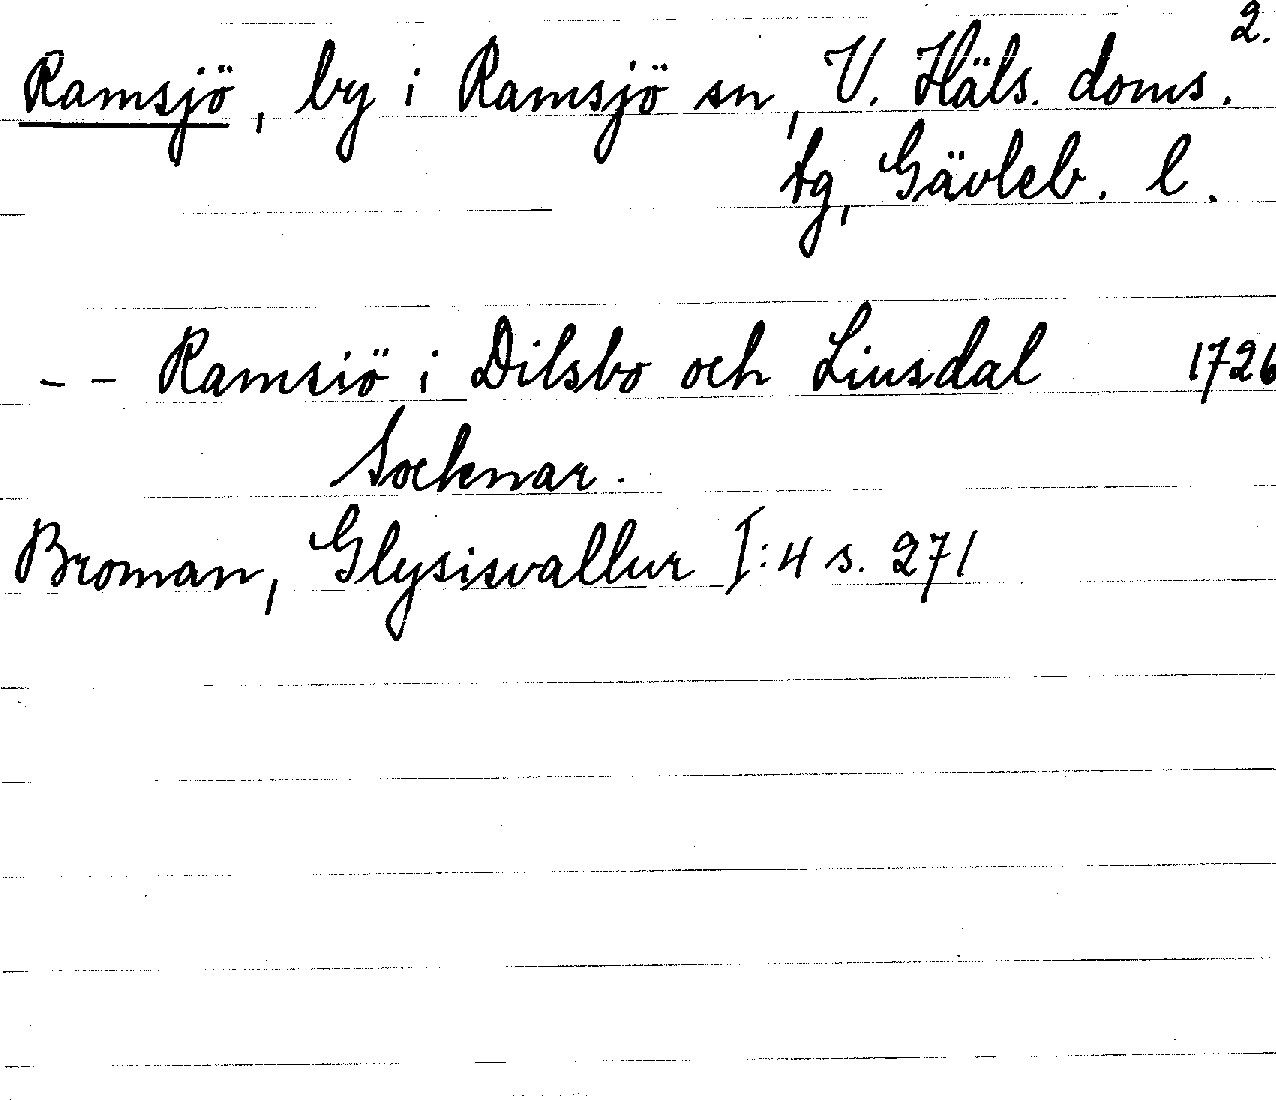 2.
Ramsjö, by i Ramsjö sn, V. Häls. doms.
tg, Gävleb. l.
- - Ramsiö i Dilsbo och Liusdal 1726
Socknar.
Broman, Glysisvallur I:4 s. 271